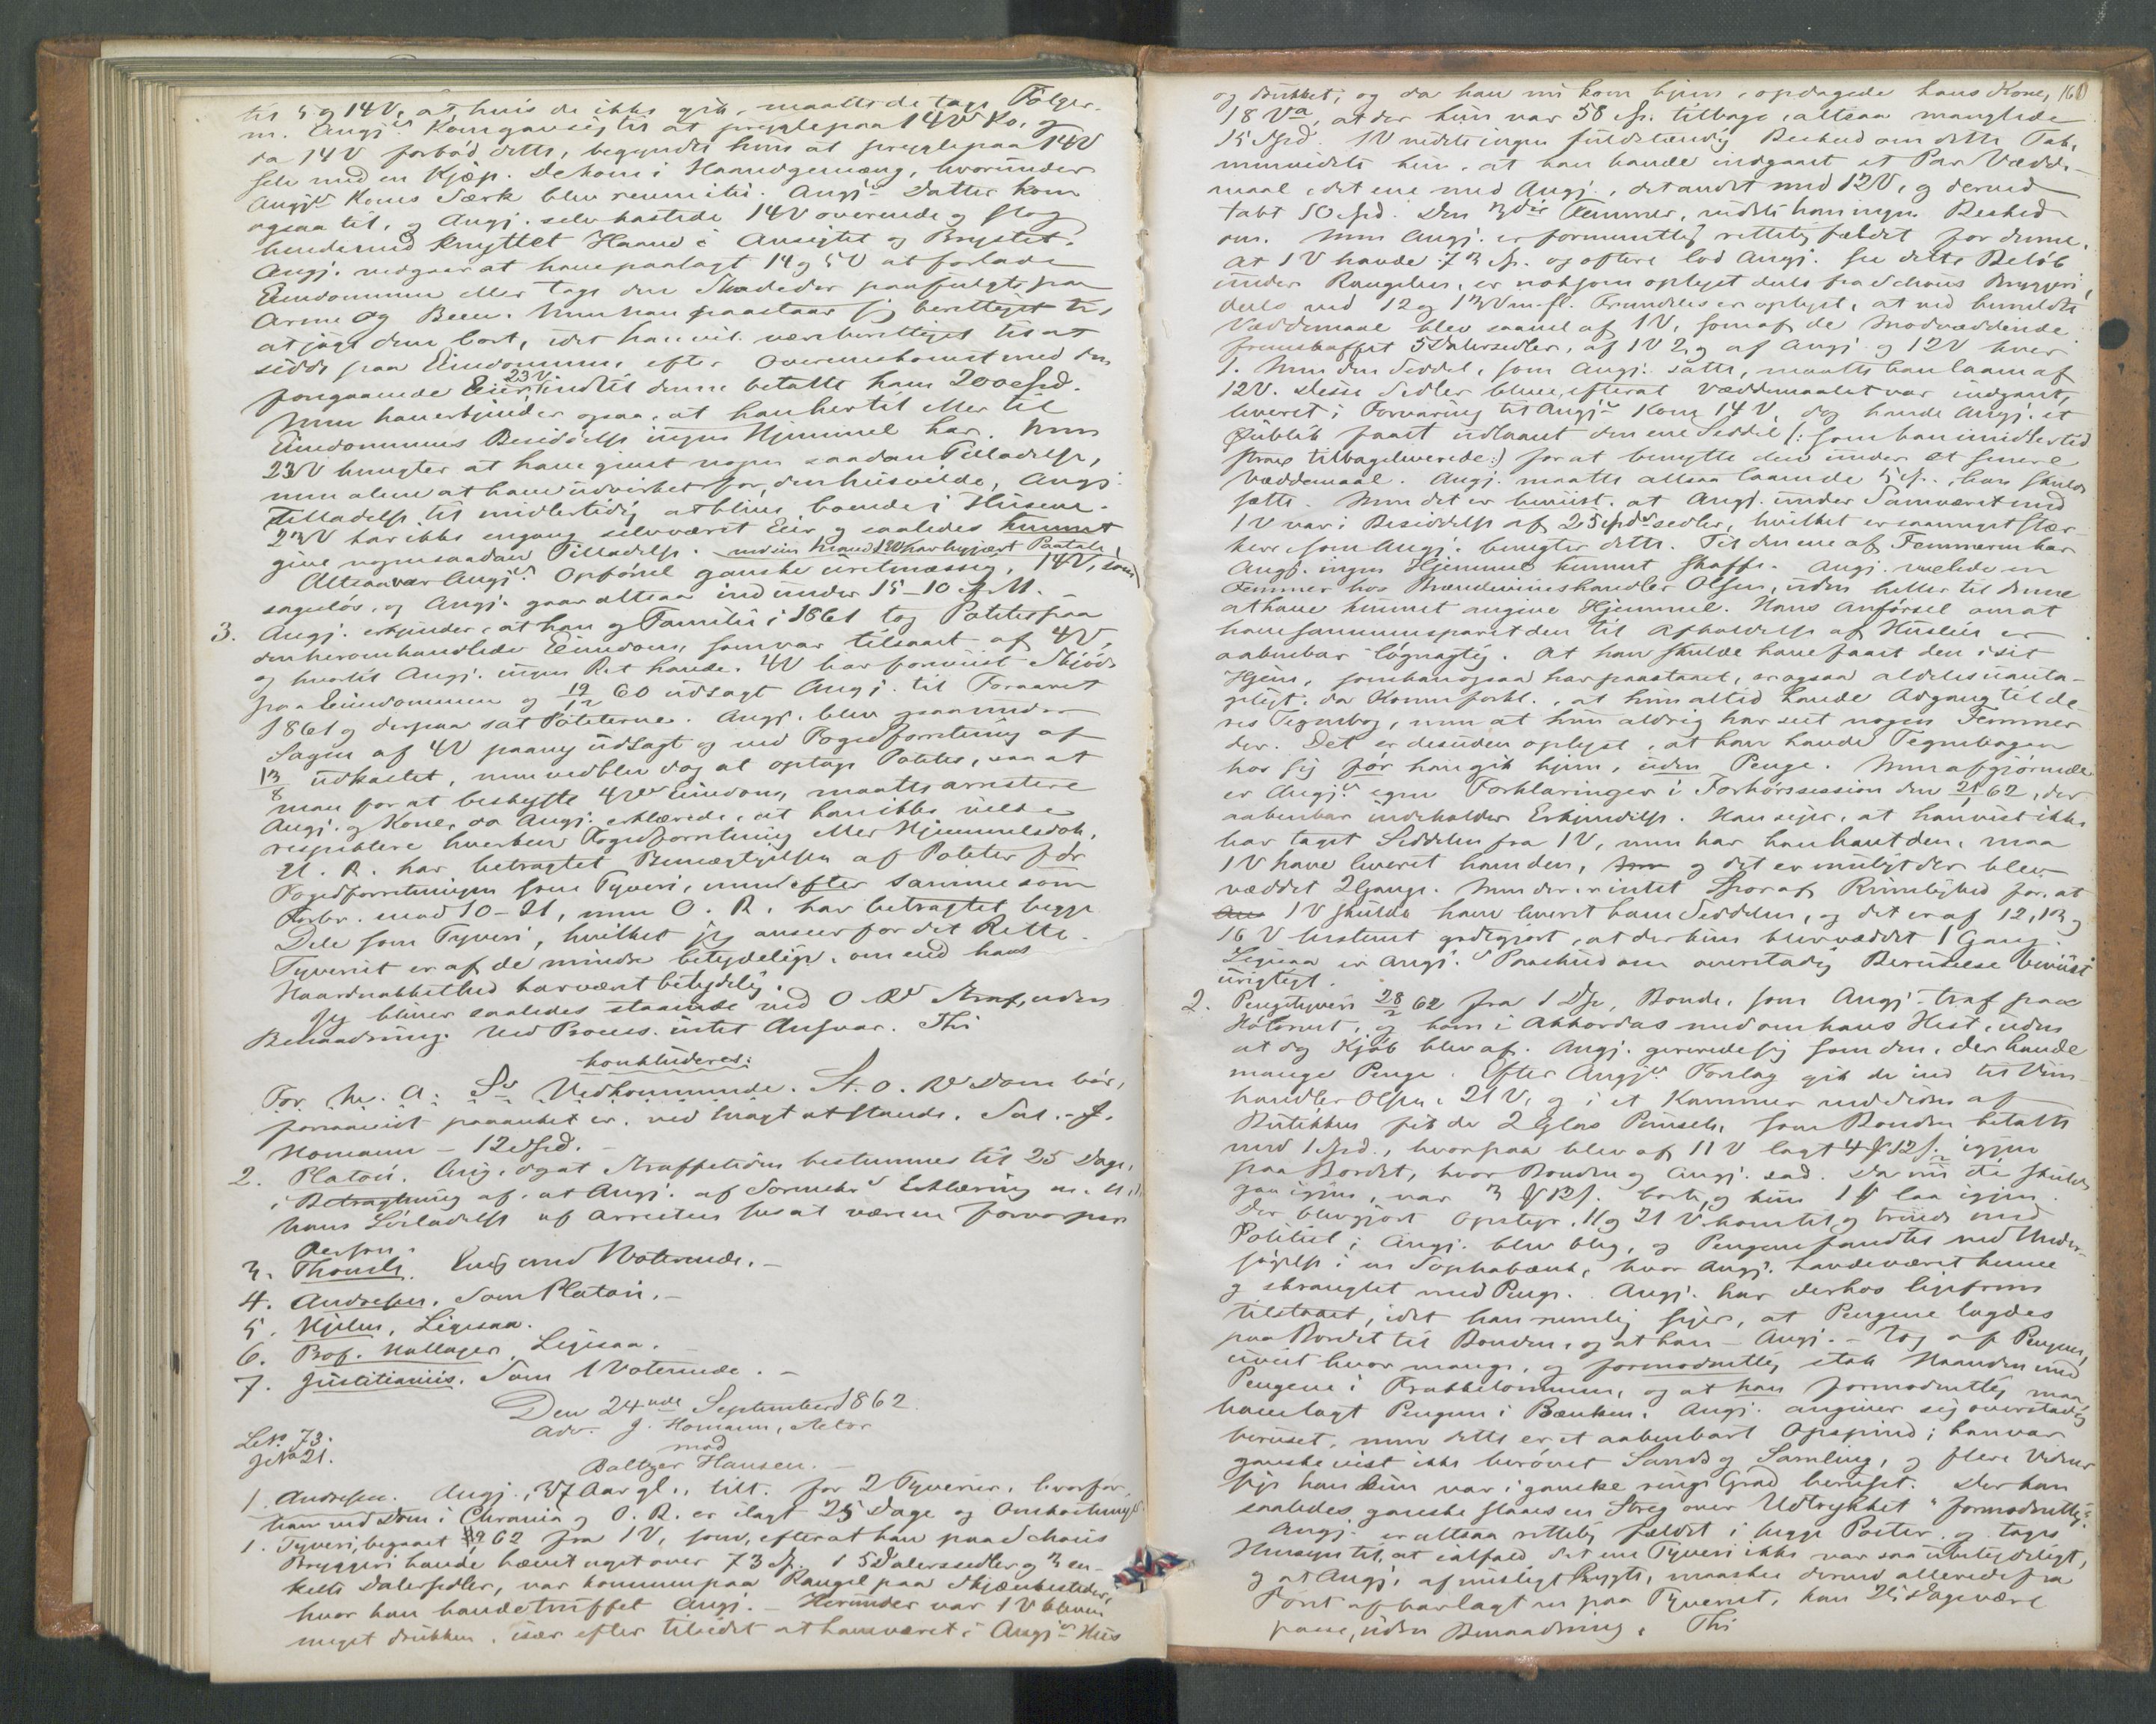 til 5 og 14 V, at hvis de ikke gik, maatte de tage Følger-
ne. Angj.s Kone gav sig til at prygle paa 14 Vs Ko, og
da 14 V forbød dette, begyndte hun at prygle paa 14 V
selv med en Kjæp. De kom i Haandgemæng, hvorunder
Angjs Kones Særk blev revet itu. Angjs Datter kom
ogsaa til, og Angj. selv kastede 14 V overende og slog
hende med knyttet Haand i Ansigtet og Brystet.
Angj. vedgaar at have paalagt 14 og 5 V at forlade
Eiendommen eller tage den Skade der paafulgte paa
Arme og Been. Men han paastaar sig berettiget til
at jage dem bort, idet han vil være berettiget til at
sidde paa Eiendommen efter Overenskomst med den
forrige Eier, 23 V. indtil denne betalte ham 200 Spd.
Men han erkjender ogsaa, at han hertil eller til
Eiendommens Besiddelse ingen Hjemmel har. Men
23 V benegter at have givet nogen saadan Tilladelse,
men alene at have udvirket for, den husvilde, Angj.
Tilladelse til midlertidig at blive boende i Husene.
23 V har ikke engang selv været Eier og saaledes kunnet
give nogen saadan Tilladelse. 
Altsaa var Angjs Opførsel ganske uretmæssig. 14 V, som med sin Mand 13 V har begjært Paatale,
sagesløs, og Angj. gaar altsaa ind under 15-10 
3. Angj. erkjender, at han og Familie i 1861 tog Poteter paa
den heromhandlede Eiendom, som var tilsaaet af 4 V,
og hvortil Angj. ingen Ret havde. 4 V har foreviist Skjøde
paa Eiendommen og 19/12 60 udsagt Angj. til Foraaret
1861 og derpaa sat Poteterne. Angj. blev under
Sagen af 4 V paany udsagt og ved Fogedforretning af
13/8 udkastet, men vedblev dog at optage Poteter, saa at
man for at beskytte 4 Vs Eiendom, maatte arrestere
Angj. og Kone, da Angj. erklærede, at han ikke vilde
respektere hverken Fogedforretning eller Hjemmelsdok.
U. R. har betragtet Borttagelsen af Poteter før
Fogedforretningen som Tyveri, men efter samme som
Forbr. mod 10-21, men O. R. har betragtet begge
Dele som Tyveri, hvilket jeg anseer for det Rette.
Tyveriet er af de mindre betydelige, om end hans
Haardnakkethed har været betydelig.
Jeg bliver saaledes staaende ved O Rs Straf, uden
Benaadning. Ved Proces. intet Ansvar. Thi
konkluderes:
For  Vedkommende. St. O. Rs Dom bør,
forsaavidt paaanket er, ved Magt at stande. Sal. J.
Homann - 12 Spd.
2. Platou. Enig, dog at Straffetiden bestemmes til 25 Dage,
i Betragtning af, at Angj. af 
hans Løsladelse af Arresten 
Person.
3. Thomle. Enig med Voterende.
4. Andresen. Som Platou.
5. Hjelm, Ligesaa.
6. Prof. Hallager, Ligesaa.
7. Justitiarius. Som 1 Voterende.
Den 24nde September 1862.
Adv. J. Homann, Actor
mod
L. No 73.
J. No 21.
Baltzer Hansen.
1. Andresen. Angj., 37 Aar gl., tilt. for 2 Tyverier, hvorfor
han ved Dom i Chrania og O. R. er ilagt 25 Dage og Omkostninger
1. Tyveri, begaaet 62 fra 1 V, som, efterat han paa Schous
Bryggeri havde hævet noget over 73 Sp. i 5Dalersedler og 3 en-
kelte Dalersedler, var kommen paa Rangel paa Skjænkesteder,
hvor han havde truffet Angj. - Herunder var 1 V bleven
meget drukken, især efter tilsidst at have været i Angjs Hus
160
og drukket, og da han nu kom hjem, opdagede hans Kone,
18 Va, at der kun var 58 Sp. tilbage, altsaa manglede
15 Spd. 1 V vidste ingen fuldstændig Besked om dette Tab,
men vidste kun, at han havde indgaaet et Par Vædde-
maal, det ene med Angj., det andet med 12 V, og derved
tabt 10 Spd. Den 3die Femmer, vidste han ingen Besked
om. Men Angj. er formentlig rettelig fældet for denne.
At 1 V havde 73 Sp. og oftere lod Angj. see dette Beløb
under Rangelen, er noksom oplyst dels fra Schous Bryggeri,
dels ved 12 og 13 V m. fl. Fremdeles er oplyst, at ved bemeldte
Væddemaal blev saavel af 1 V, som af de Modvæddende
fremskaffet 5Dalersedler, af 1 V 2, og af Angj. og 12 V hver
1. Men den Seddel, som Angj. satte, maatte han laane af
12 V. Disse Sedler bleve, efterat Væddemaalet var indgaaet,
leveret i Forvaring til Angjs Kone 14 V, dog havde Angj. et
Øieblik faaet udlaant den ene Seddel (: som han imidlertid
strax tilbageleverede:) for at benytte den under et senere
Væddemaal. Angj. maatte altsaa laane de 5 Sp., han skulde
sætte. Men det er beviist, at Angj. under Samværet med
1 V var i Besiddelse af 2 5Spdssedler, hvilket er saameget stær-
kere, som Angj. benegter dette. Til den ene af Femmerne har
Angj. ingen Hjemmel kunnet skaffe. Angj. vexlede en
Femmer hos Brændeviinshandler Olsen, uden heller til denne
at have kunnet angive Hjemmel. Hans Anførsel om at
have sammensparet den til Afholdelse af Huusleie er
aabenbar løgnagtig. At han skulde have faaet den i sit
Hjem, som han ogsaa har paastaaet, er ogsaa aldeles uanta-
geligt, da Konen forkl., at hun altid havde Adgang til de-
res Tegnebog, men at hun aldrig har seet nogen Femmer
der. Det er desuden oplyst, at han havde Tegnebogen
hos sig før han gik hjem, uden Penge. Men afgjørende
er Angjs egne Forklaringer i Forhørssession den 21/1 62, der
aabenbar indeholder Erkjendelse. Han siger, at han vist ikke
har taget Seddelen fra 1 V, men har han havt den, maa
1 V have leveret ham den, og det er muligt der blev
væddet 2 Gange. Men der er intet Spor af Rimelighed for, at
1 V skulde have leveret ham Seddelen, og det er af 12, 13 og
16 V bestemt godtgjort, at der kun blev væddet 1 Gang.
Ligesaa er Angj.s Paaskud om overstadig Beruselse beviist
urigtigt.
2. Pengetyveri 28/2 62 fra 1 Dr, Bonde, som Angj. traf paa
Høtorvet, og kom i Akkordas med om hans Hest, uden
at dog Kjøb blev af. Angj. gererede sig som den, der havde
mange Penge. Efter Angjs Forslag gik de ind til Viin-
handler Olsen, 21 V, og i et Kammer ved Siden af
Butikken fik de 2 Glas Punsch, som Bonden betalte
med 1 Spd., hvorpaa blev af 11 V lagt 4 12 s. igjen
paa Bordet, hvor Bonden og Angj. sad. Da nu de skulde
gaa igjen, var 3 12 s. borte, og kun 1 laa igjen.
Der blev gjort Opstyr. 11 og 21 V kom til og truede med
Politiet; Angj. blev bleg, og Pengene fandtes ved Under-
søgelse i en Sophabænk, hvor Angj. havde været henne
og skranglet med Penge. Angj. har derhos ligefrem
tilstaaet, idet han nemlig siger, at Pengene lagdes
paa Bordet til Bonden, og at han - Angj. - tog af Pengene,
uvist hvor mange, og formodentlig stak Haanden med
Pengene i Frakkelommen, og at han formodentlig maa
have lagt Pengene i Bænken. Angj. angiver sig overstadig
beruset, men dette er et aabenbart Opspind; han var
ganske vist ikke berøvet Sands og Samling, og flere Vidner
sige han kun var i ganske ringe Grad beruset. Der kan
saaledes ganske slaaes en Streg over Udtrykket "formodentlig".
Angj. er altsaa rettelig fældet i begge Poster, og tages
Hensyn til, at ialfald det ene Tyveri ikke var saa ubetydeligt,
og at Angj., af misligt Rygte, maaskee derved allerede fra
Først af har lagt an paa Tyveriet, kan 25 Dage være
passe, uden Benaadning. Thi